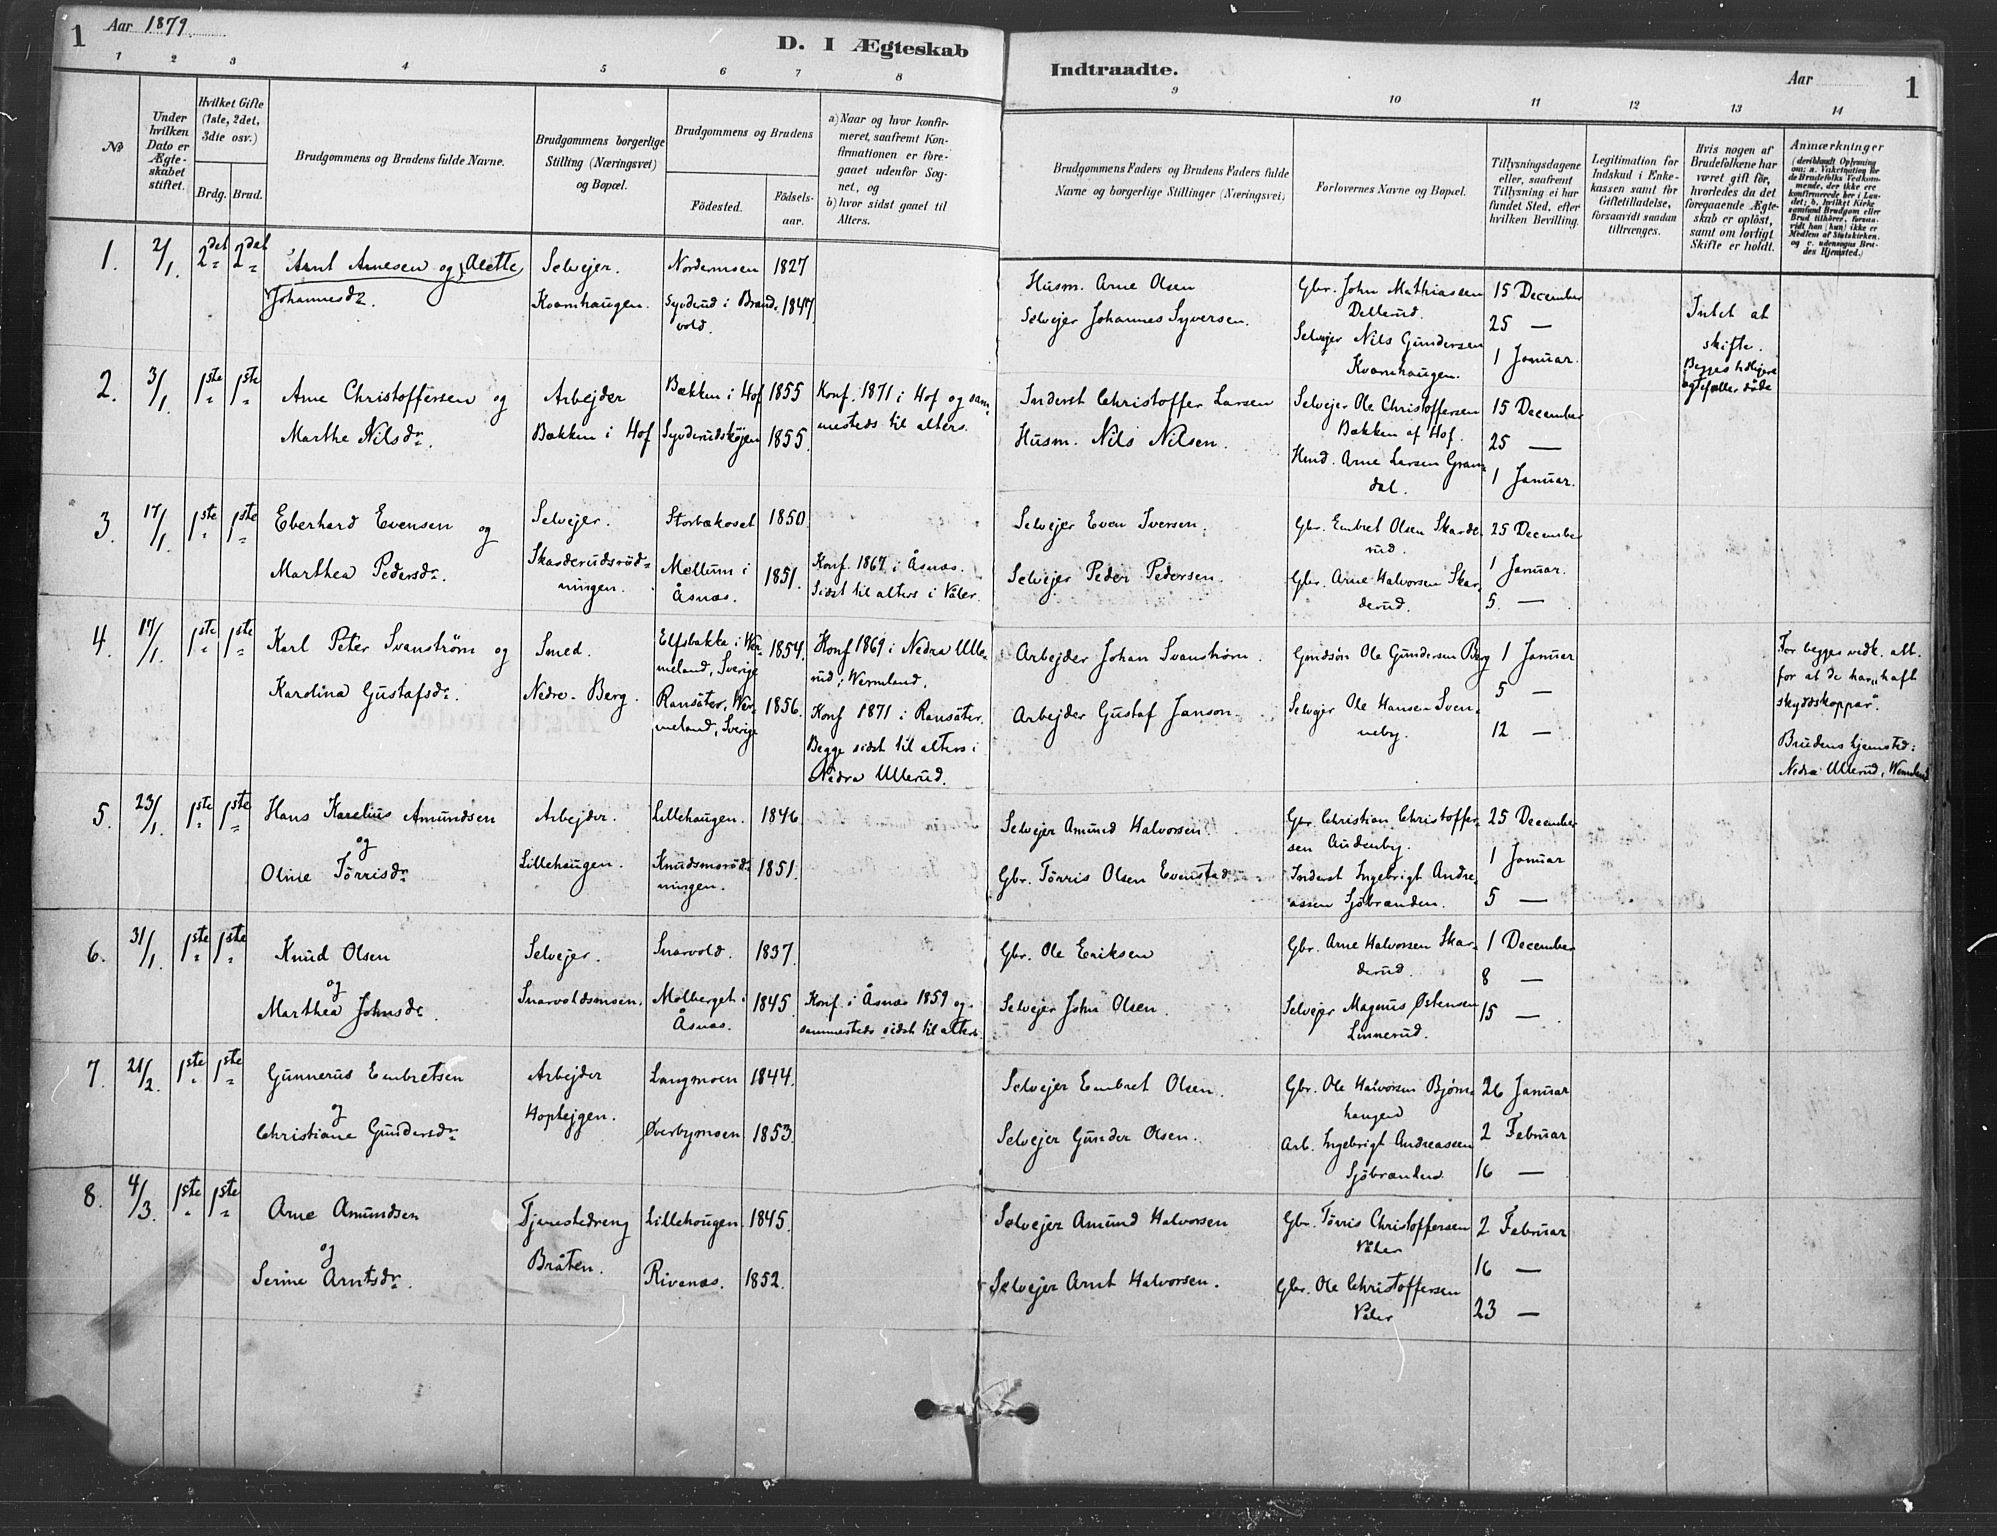 1 Aar 1879.
D. I Ægteskab
Indtraadte.
Aar 1
1 2 3 4 5 6 7 8
9 10 11 12 13 14
№
Under hvilken Dato er Ægteskabet stiftet.
Hvilket Gifte (1ste, 2det, 3die osv.)
Brdg. Brud.
Brudgommens og Brudens fulde Navne.
Brudgommens borgerlige Stilling (Næringsvei) og Bopæl.
Brudgommens og Brudens
Födested.
Födselsaar.
a) Naar og hvor konfirmeret, saafremt Konfirmationen er foregaaet udenfor Sognet, og
b) hvor sidst gaaet til Alters.
Brudgommens Faders og Brudens Faders fulde Navne og borgerlige Stillinger (Næringsvei)
Forlovernes Navne og Bopæl.
Tillysningsdagene eller, saafremt Tillysning ei har fundet Sted, efter hvilken Bevilling.
Legitimation for Indskud i Enkekassen samt for Giftetilladelse, forsaavidt saadan tiltrænges.
Hvis nogen af Brudefolkene har været gift før, hvorledes da det foregaaende Ægteskab er oplöst, samt om lovligt Skifte er holdt.
Anmærkninger
1. 2/1. 2det 2det
Arnt Arnesen og Alette
Johannesdr.
Selvejer.
Kvarnhaugen.
Nordermoen 1827
Syverud i Brandvold. 1847.
Husm. Arne Olsen
Selvejer Johannes Syversen.
Gbr. John Mathiassen
Dellerud.
Selvejer Nils Gundersen
Kvarnhaugen.
15 December
25 —
1 Januar.
Intet at
skifte.
Begges tidligere
ægtefæller døde
2. 3/1. 1ste 1ste
Arne Christoffersen og
Marthe Nilsdr.
Arbejder
Bækken i Hof
Bækken i Hof 1855
Syverudskøjen 1855.
Konf. 1871 i Hof og sam=
mesteds til alters.
Inderst Christoffer Larsen
Husm. Nils Nilsen.
Selvejer Ole Christoffersen
Bækken af Hof.
Hmd. Arne Larsen Gran=
dal.
15 December
25 —
1 Januar.
3. 17/1. 1ste 1ste
Eberhard Evensen og
Marthea Pedersdr.
Selvejer.
Skarderudsrød=
ningen.
Storbækoset 1850.
Mellum i
Åsnæs. 1851.
Konf. 1867 i Åsnæs.
Sidst til alters i Våler.
Selvejer Even Iversen.
Selvejer Peder Pedersen.
Gbr. Embret Olsen Skarde=
rud.
Gbr. Arne Halvorsen Skar=
derud.
25 December
1 Januar.
5. —
4. 17/1. 1ste 1ste
Karl Peter Svanstrøm og
Karolina Gustafsdr.
Smed.
Nedre-Berg.
Elfsbakka i Wer=
meland, Sverige 1854.
Ransäter, Wer=
meland, Sverige 1856.
Konf 1869 i Nedra Ulle=
rud, Wermland.
Konf 1871 i Ransäter.
Begge sidst til alters i
Nedra Ullerud.
Arbejder Johan Svanstrøm.
Arbejder Gustaf Janson.
Grndsøn Ole Gundersen Berg
Selvejer Ole Hansen Sven=
neby.
1 Januar
5 —
12 —
For begges vedk. att.
for at de har haft
skyddskoppår.
Brudens hjemsted:
Nedra Ullerud, Wermland
5. 23/1. 1ste 1ste
Hans Karelius Amundsen
og
Oline Tørrisdr.
Arbejder.
Lillehaugen.
Lillehaugen. 1846
Knudsmorød=
ningen. 1851.
Selvejer Amund Halvorsen
Gbr. Tørris Olsen Evenstad
Gbr Christian Christoffer=
sen Audenby.
Inderst Ingebrigt Andre=
assen Sjöbranden.
25 December
1 Januar
5 —
6. 31/1. 1ste 1ste
Knud Olsen
og
Marthea Johnsdr.
Selvejer.
Snarvoldsmoen.
Snarvold. 1837.
Mølberget i
Åsnæs. 1845.
Konf. i Åsnæs 1859 og
sammesteds sidst til alters.
Gbr. Ole Eriksen
Selvejer John Olsen.
Gbr. Arne Halvorsen Skar=
derud.
Selvejer Magnus Østensen
Linnerud.
1 December
8 —
15 —
7. 21/2. 1ste 1ste
Gunnerus Embretsen
og
Christiane Gundersdr.
Arbejder
Langmoen 1844.
Øverbymoen 1853.
Selvejer Embret Olsen.
Selvejer Gunder Olsen.
Gbr. Ole Halvorsen Bjørn=
haugen
Arb. Ingebrigt Andreassen
Sjöbranden
26 Januar
2 Februar
16 —
8. 4/3. 1ste 1ste
Arne Amundsen
og
Serine Arntsdr.
Tjenestedreng
Bråten.
Lillehaugen. 1845.
Rivenæs. 1852.
Selvejer Amund Halvorsen
Selvejer Arnt Halvorsen.
Gbr. Tørris Christoffersen
Våler
Gbr. Ole Christoffersen
Våler
2 Februar
16 —
23 —